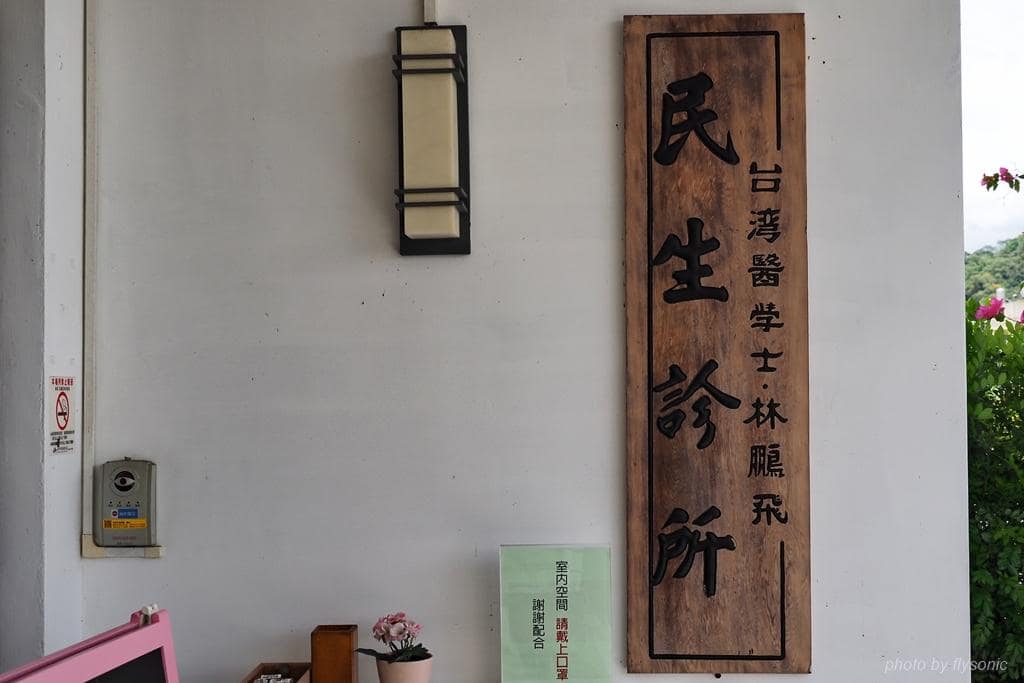 民生診所
台湾醫学士·林鵬飛
室內空間 請戴上口罩
謝謝配合
photo by flysonic